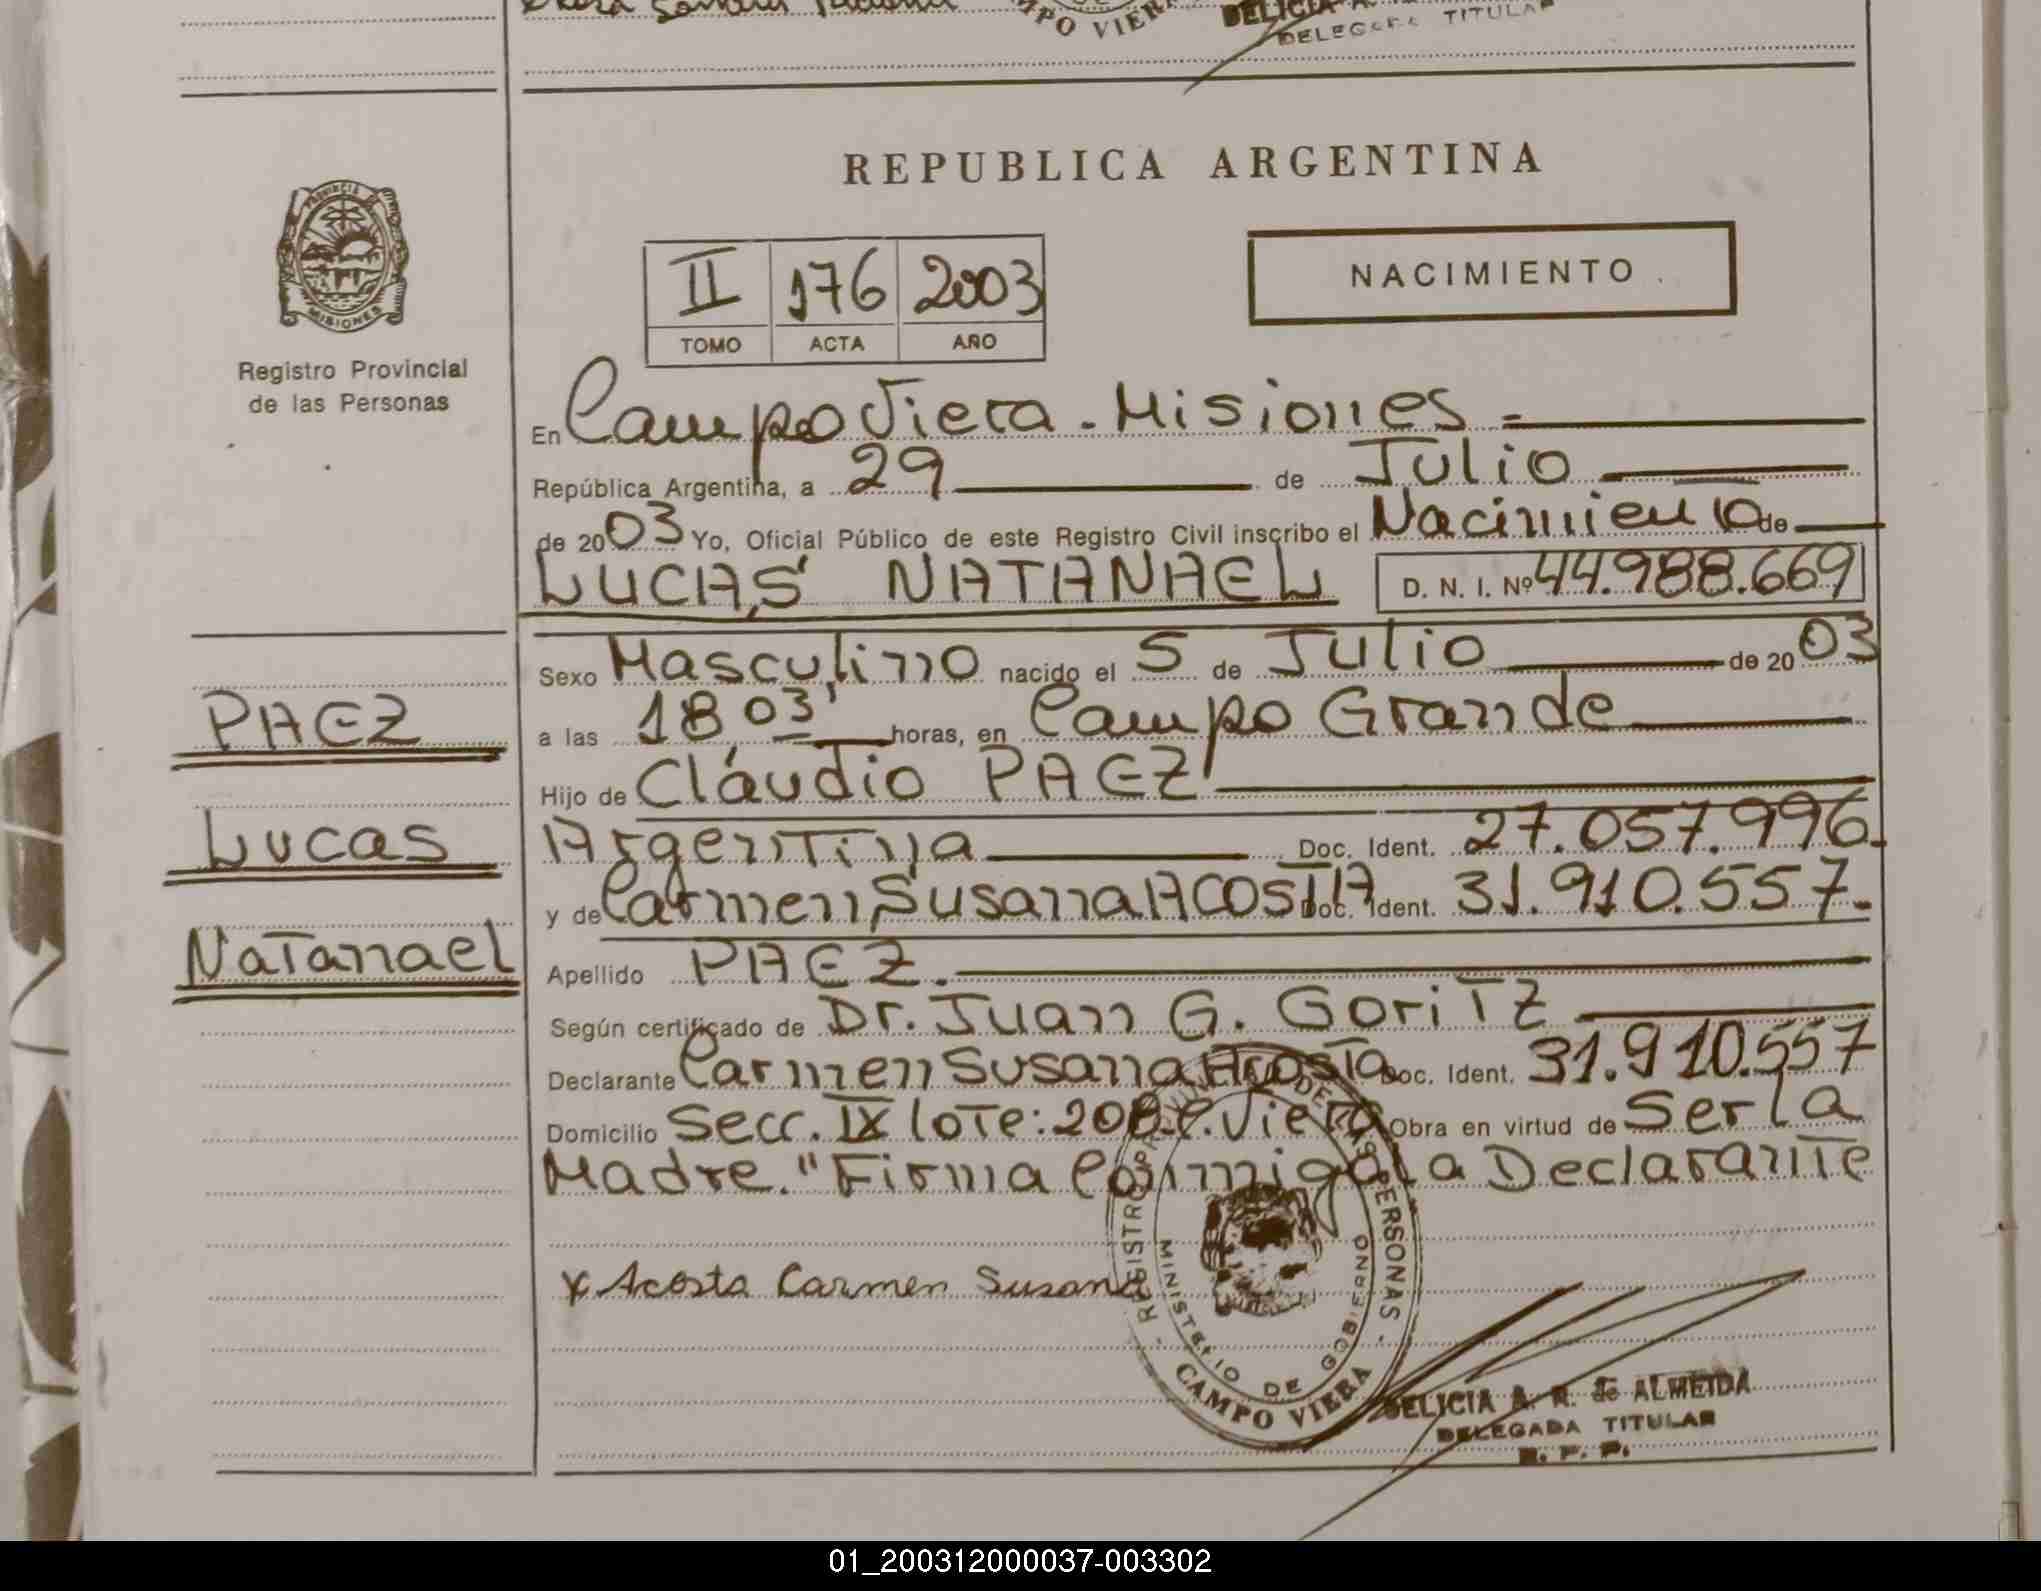 CAMPO VIERA
DELICIA A.
DELEGADA TITULAR
REPUBLICA ARGENTINA
PROVINCIA
MISIONES
Registro Provincial
de las Personas
II 176 2003
TOMO ACTA AÑO
NACIMIENTO
En Campo Viera - Misiones =
República Argentina, a 29 de Julio
de 2003 Yo, Oficial Público de este Registro Civil inscribo el Nacimiento de
LUCAS NATANAEL D. N. I. Nº 44.988.669
Sexo Masculino nacido el 5 de Julio de 2003
a las 18 03' horas, en Campo Grande
Hijo de Cláudio PAEZ
Argentina Doc. Ident. 27.057.996.
y de Carmen Susana ACOSTA Doc. Ident. 31.910.557.
Apellido PAEZ.
Según certificado de Dr. Juan G. GoriTZ
Declarante Carmen Susana Acosta Doc. Ident. 31.910.557
Domicilio Secc. IX lote: 208 C. Viera Obra en virtud de Ser la
Madre. "Firma Conmigo la Declarante
x Acosta Carmen Susana
PAEZ
Lucas
Natanael
REGISTRO PROVINCIAL DE LAS PERSONAS
MINISTERIO DE GOBIERNO
CAMPO VIERA
DELICIA A. R. de ALMEIDA
DELEGADA TITULAR
R. P. P.
01_200312000037-003302